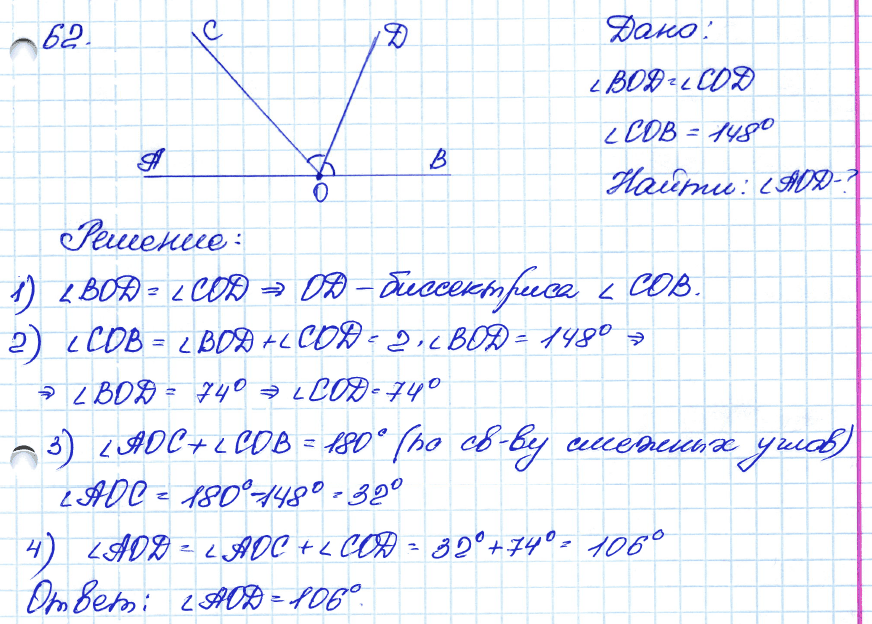 62.
C
D
A
B
O
Дано:
∠BOD=∠COD
∠COB = 148°
Найти: ∠AOD-?
Решение:
1) ∠BOD = ∠COD ⇒ OD – биссектриса ∠ COB.
2) ∠COB = ∠BOD+∠COD = 2·∠BOD = 148° ⇒
⇒ ∠BOD = 74° ⇒ ∠COD=74°
3) ∠AOC+∠COB = 180° (по св-ву смежных углов)
∠AOC = 180°-148° = 32°
4) ∠AOD = ∠AOC + ∠COD = 32°+74° = 106°
Ответ: ∠AOD=106°.